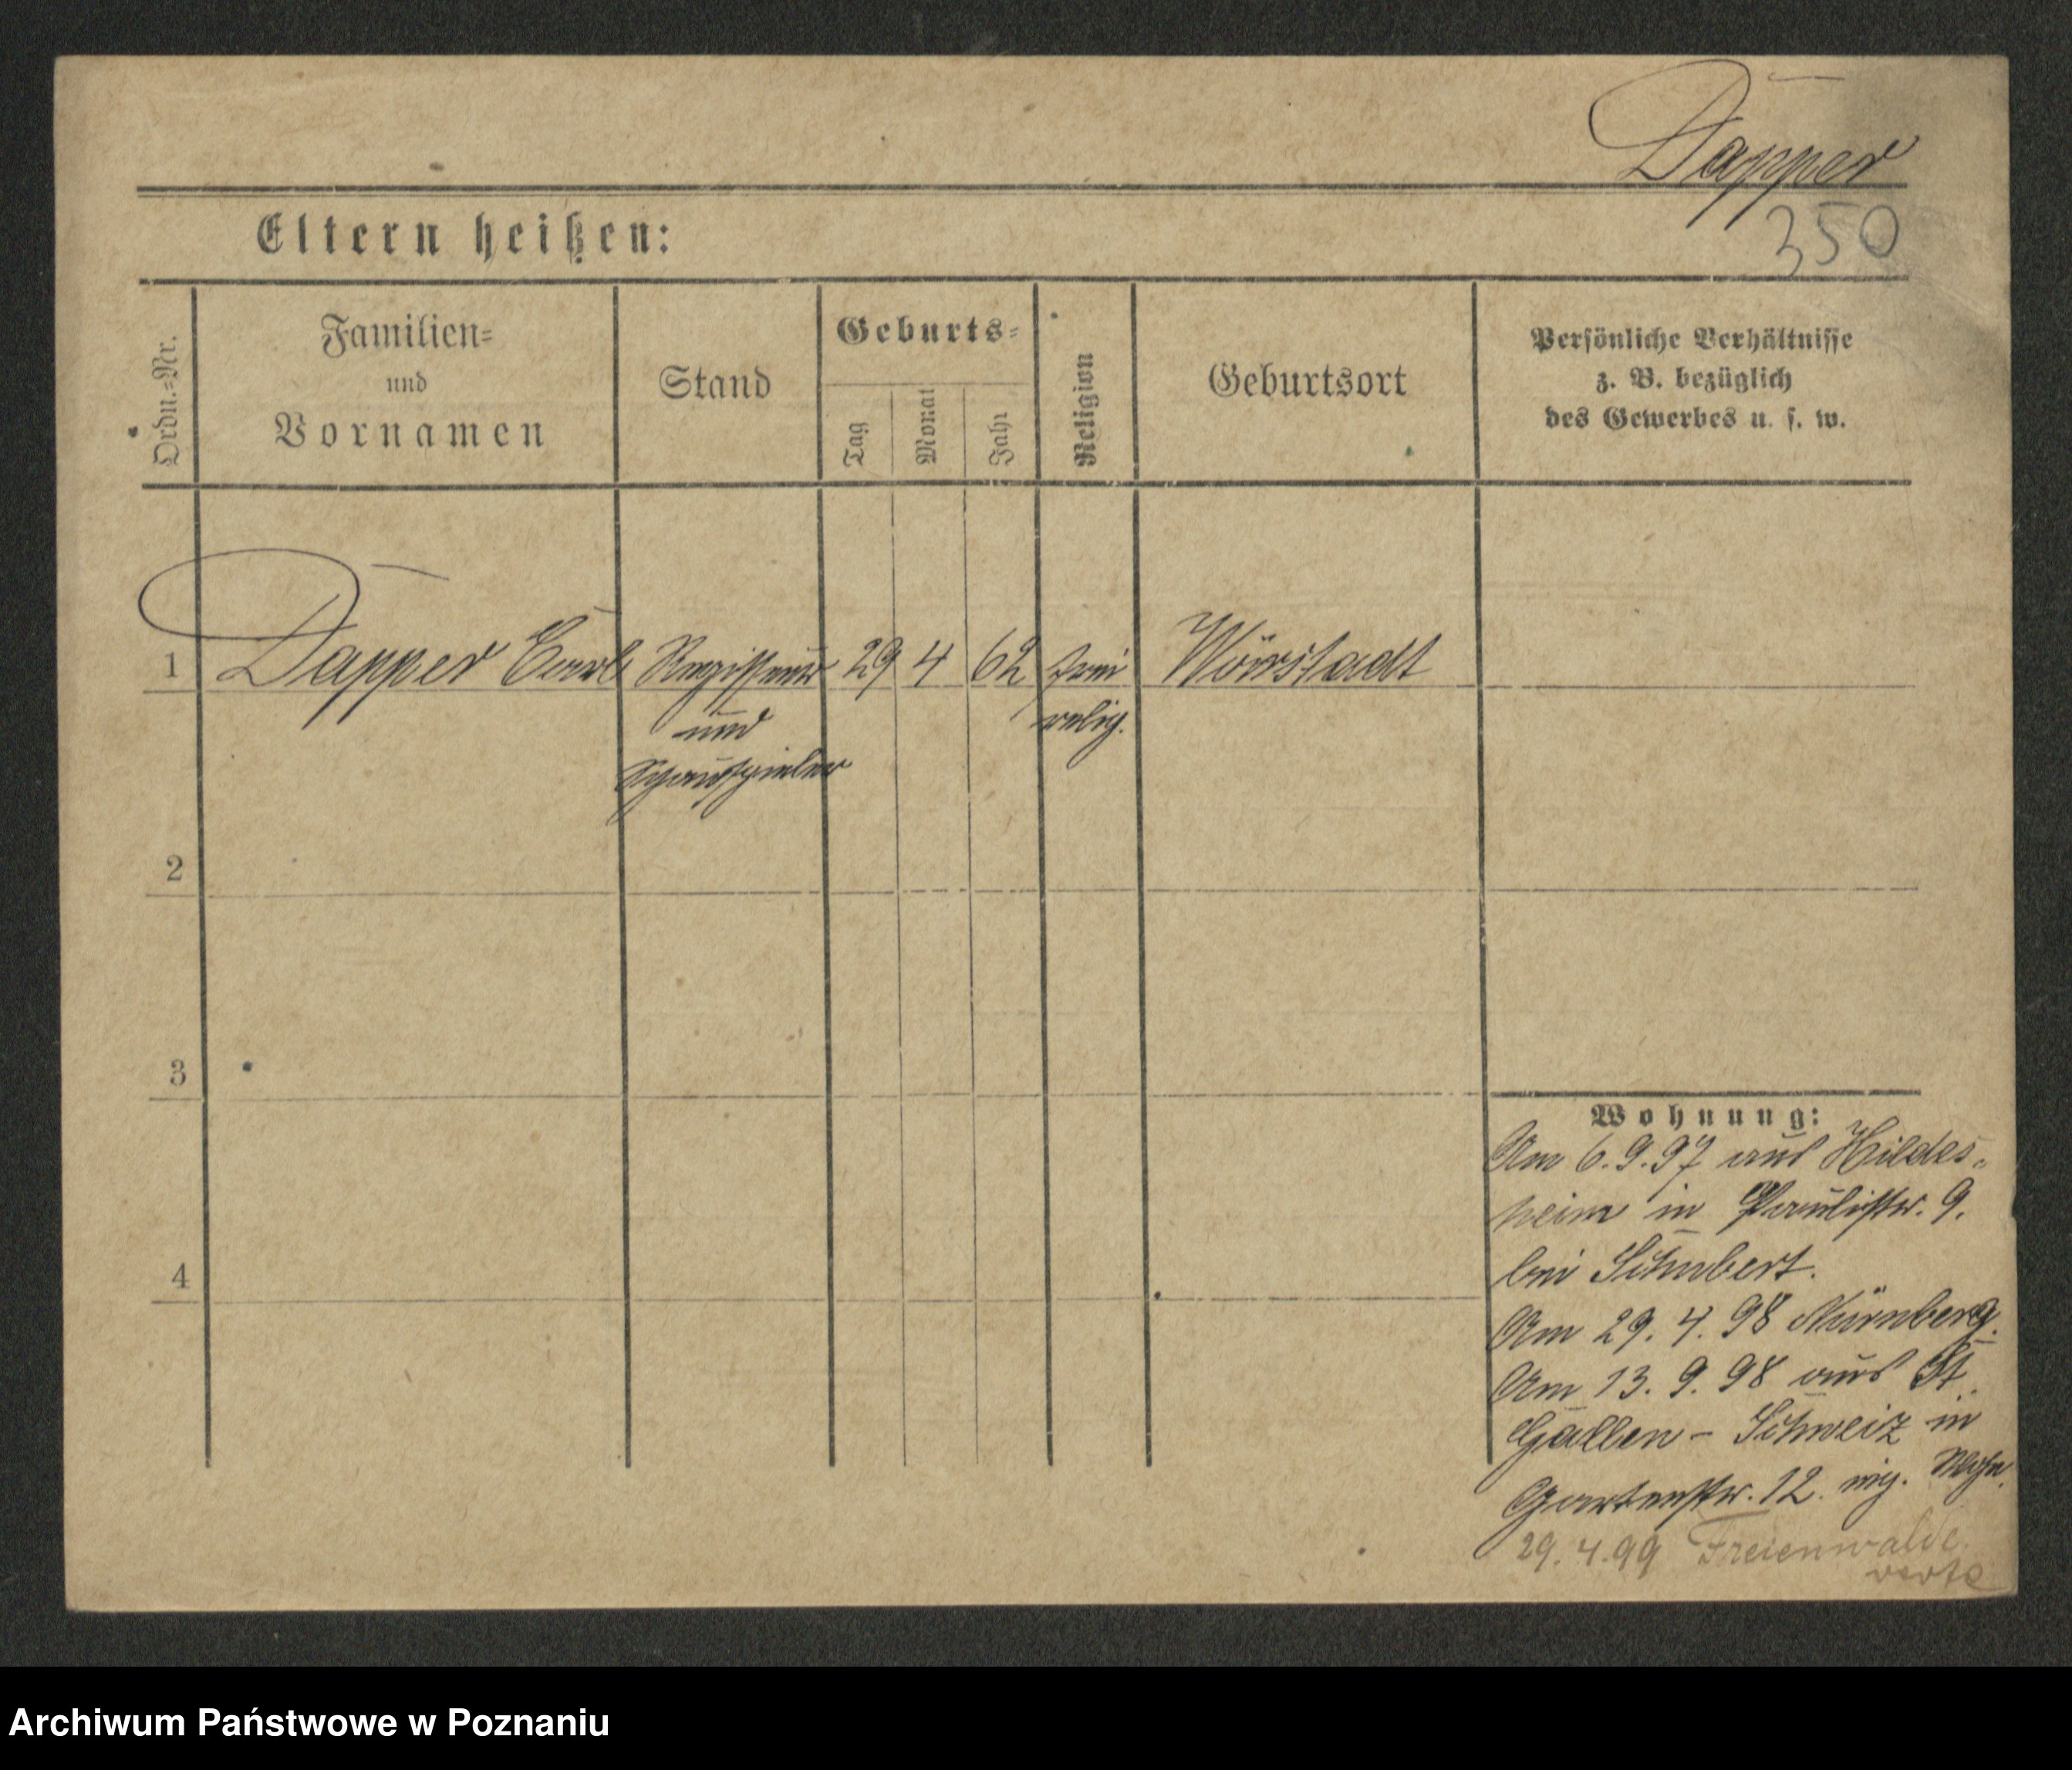 Dapper
350
Eltern heißen:
Ordn.=Nr.
Familien=
und
Vornamen
Stand
Geburts=
Tag
Monat
Jahr
Religion
Geburtsort
Persönliche Verhältnisse
z. B. bezüglich
des Gewerbes u. s. w.
1 Dapper Carl Regisseur 29 4 62 frei Wörrstadt
und relig.
Schauspieler
2
3
4
Wohnung:
Am 6.9.97 aus Hildes=
heim in Paulistr. 9.
bei Schubert.
Am 29. 4. 98 Nürnberg.
Am 13. 9. 98 aus St.
Gallen – Schweiz in
Gartenstr. 12. eig.
29.4.99 Freienwalde.
verte
Archiwum Państwowe w Poznaniu